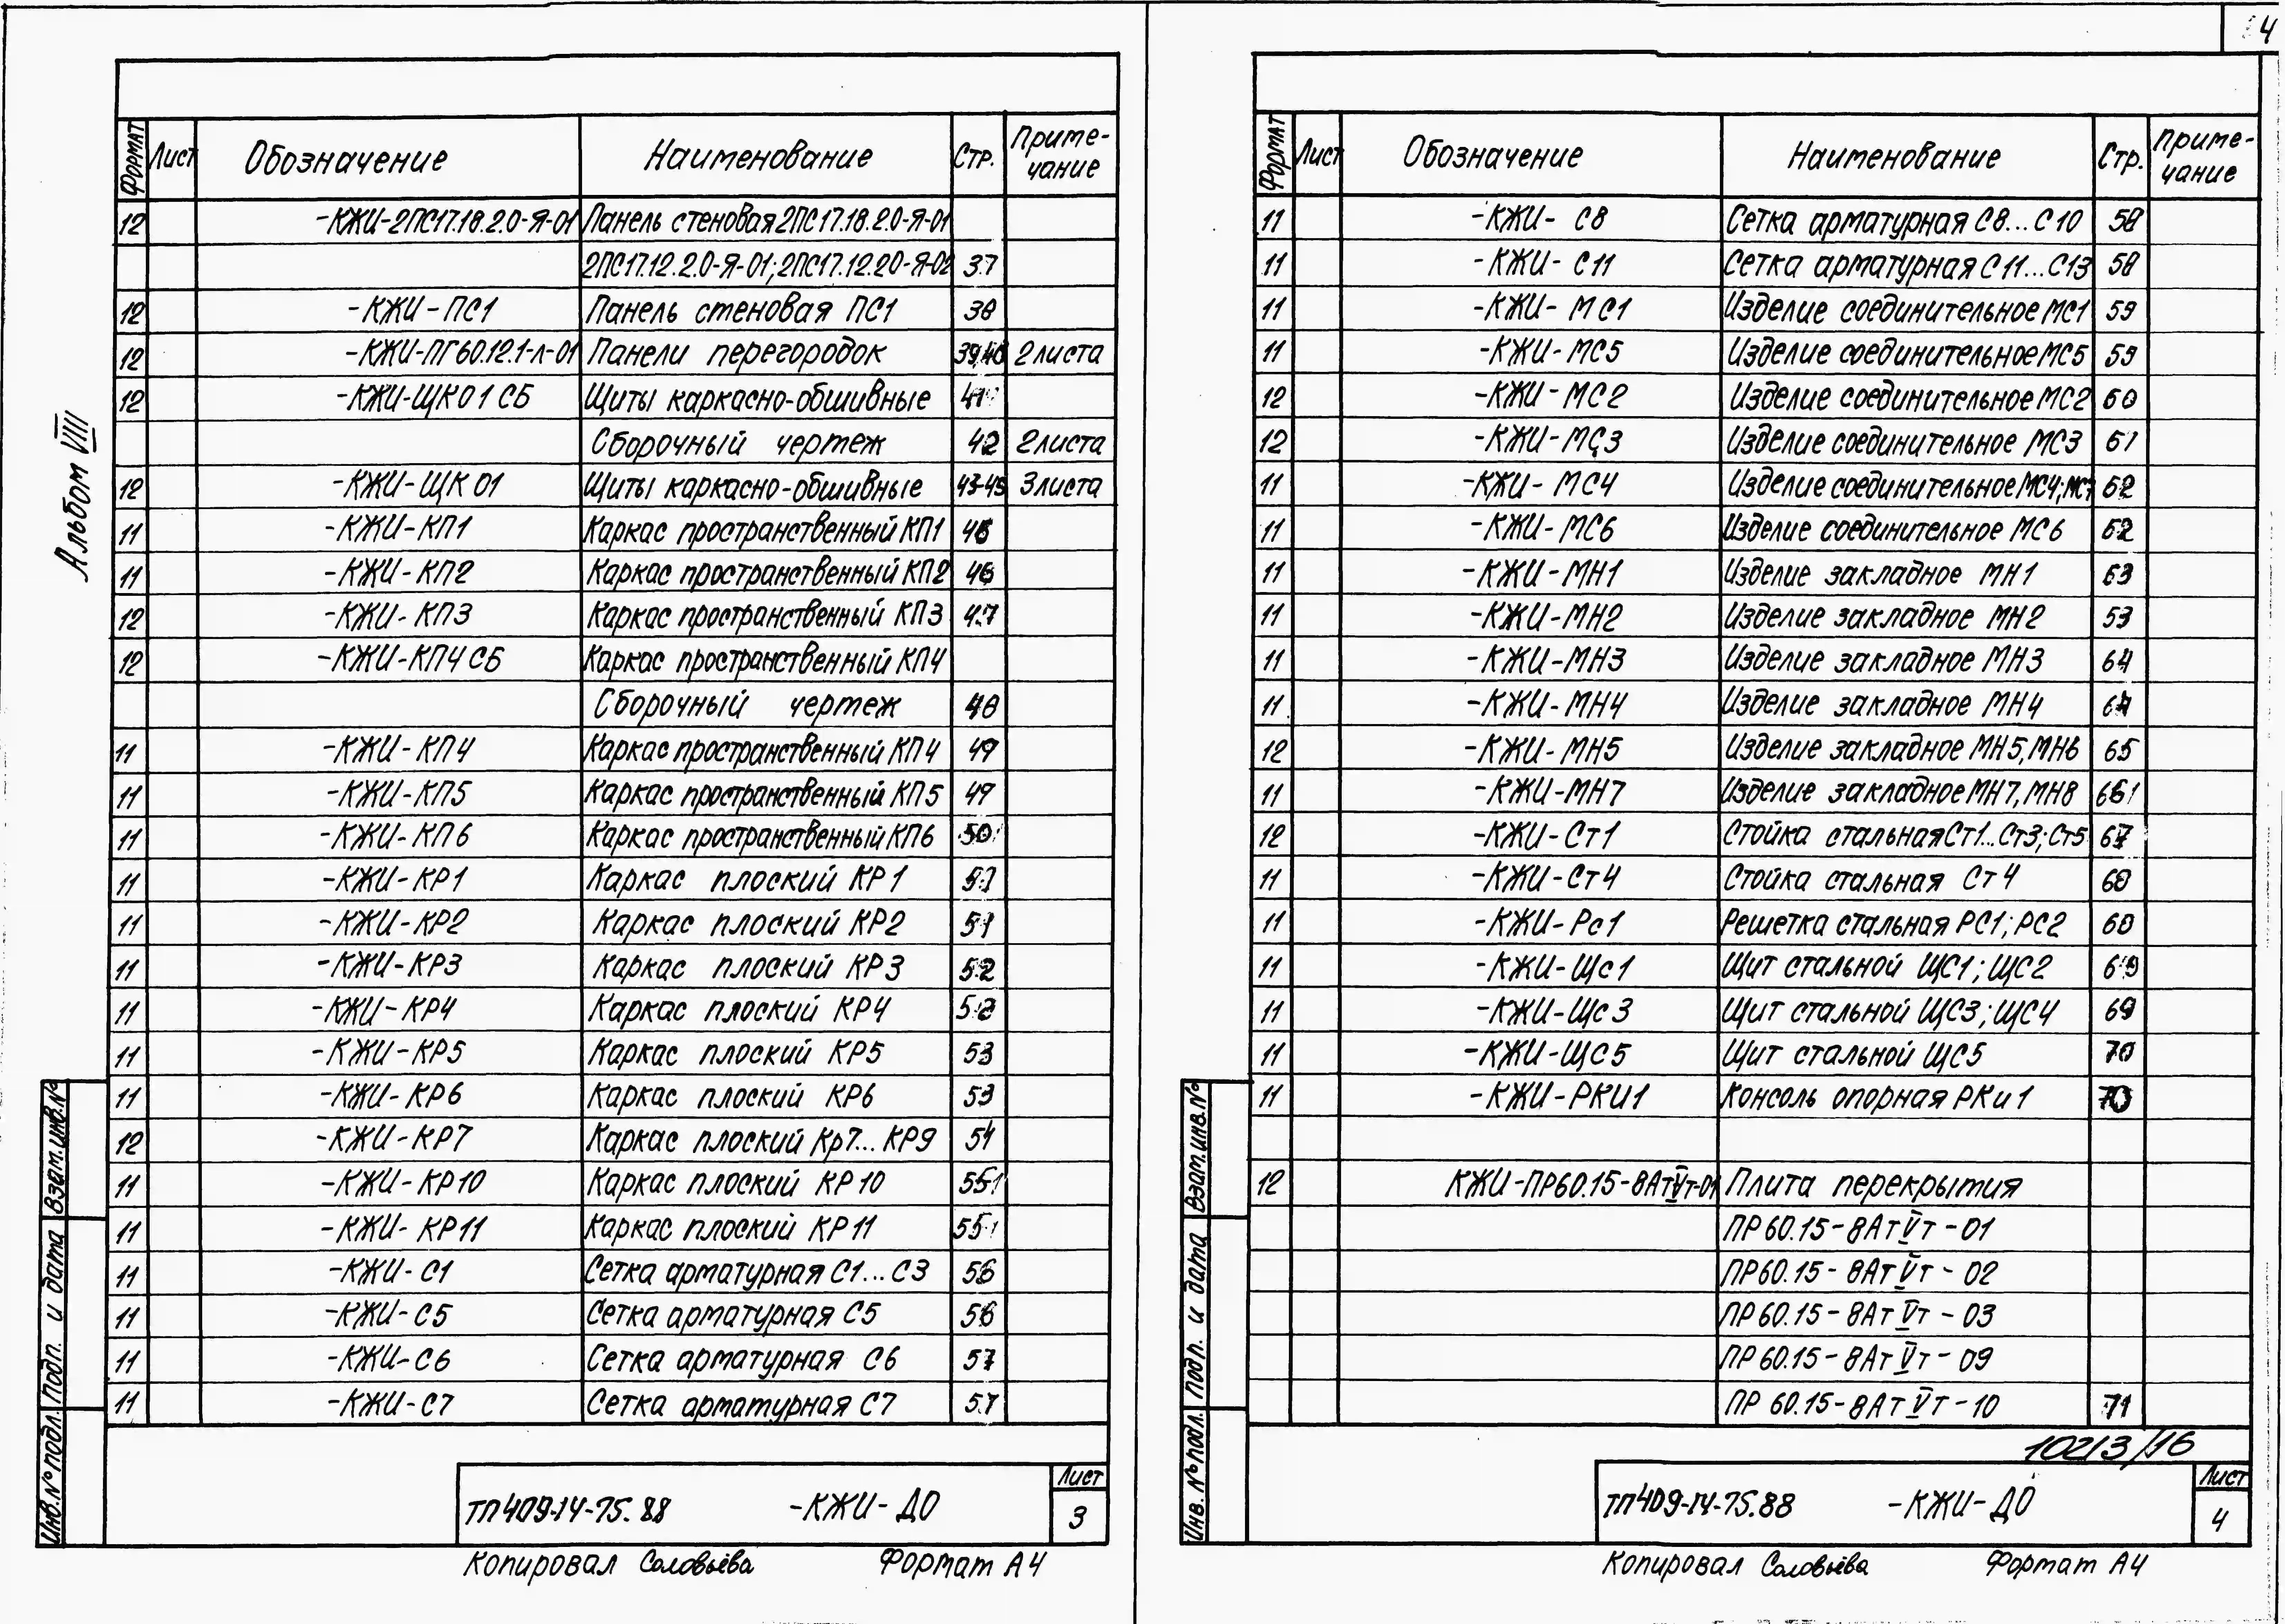 4
Альбом VIII
Формат Лист Обозначение Наименование Стр. Примечание
12 -КЖИ-2ПС17.18.2.0-Я-01 Панель стеновая 2ПС17.18.2.0-Я-01
2ПС17.12.2.0-Я-01; 2ПС17.12.20-Я-02 37
12 -КЖИ-ПС1 Панель стеновая ПС1 38
12 -КЖИ-ПГ60.12.1-Л-01 Панели перегородок 39,40 2 листа
12 -КЖИ-ЩК01 СБ Щиты каркасно-обшивные 41
Сборочный чертеж 42 2 листа
12 -КЖИ-ЩК 01 Щиты каркасно-обшивные 43-45 3 листа
11 -КЖИ-КП1 Каркас пространственный КП1 46
11 -КЖИ-КП2 Каркас пространственный КП2 46
12 -КЖИ-КП3 Каркас пространственный КП3 47
12 -КЖИ-КП4 СБ Каркас пространственный КП4
Сборочный чертеж 48
11 -КЖИ-КП4 Каркас пространственный КП4 49
11 -КЖИ-КП5 Каркас пространственный КП5 49
11 -КЖИ-КП6 Каркас пространственный КП6 50
11 -КЖИ-КР1 Каркас плоский КР1 51
11 -КЖИ-КР2 Каркас плоский КР2 51
11 -КЖИ-КР3 Каркас плоский КР3 52
11 -КЖИ-КР4 Каркас плоский КР4 52
11 -КЖИ-КР5 Каркас плоский КР5 53
11 -КЖИ-КР6 Каркас плоский КР6 53
12 -КЖИ-КР7 Каркас плоский Кр7...КР9 54
11 -КЖИ-КР10 Каркас плоский КР10 55
11 -КЖИ-КР11 Каркас плоский КР11 55
11 -КЖИ-С1 Сетка арматурная С1...С3 56
11 -КЖИ-С5 Сетка арматурная С5 56
11 -КЖИ-С6 Сетка арматурная С6 57
11 -КЖИ-С7 Сетка арматурная С7 57
Взам.инв.№
Подп. и дата
Инв.№ подл.
ТП 409-14-75.88 -КЖИ-ДО Лист 3
Копировал Соловьёва Формат А4
Формат Лист Обозначение Наименование Стр. Примечание
11 -КЖИ-С8 Сетка арматурная С8...С10 58
11 -КЖИ-С11 Сетка арматурная С11...С13 58
11 -КЖИ-МС1 Изделие соединительное МС1 59
11 -КЖИ-МС5 Изделие соединительное МС5 59
12 -КЖИ-МС2 Изделие соединительное МС2 60
12 -КЖИ-МС3 Изделие соединительное МС3 61
11 -КЖИ-МС4 Изделие соединительное МС4; МС7 62
11 -КЖИ-МС6 Изделие соединительное МС6 62
11 -КЖИ-МН1 Изделие закладное МН1 63
11 -КЖИ-МН2 Изделие закладное МН2 63
11 -КЖИ-МН3 Изделие закладное МН3 64
11 -КЖИ-МН4 Изделие закладное МН4 64
12 -КЖИ-МН5 Изделие закладное МН5, МН6 65
11 -КЖИ-МН7 Изделие закладное МН7, МН8 66
12 -КЖИ-Ст1 Стойка стальная Ст1...Ст3; Ст5 67
11 -КЖИ-Ст4 Стойка стальная Ст4 68
11 -КЖИ-Рс1 Решетка стальная РС1; РС2 68
11 -КЖИ-Щс1 Щит стальной ЩС1; ЩС2 69
11 -КЖИ-Щс3 Щит стальной ЩС3; ЩС4 69
11 -КЖИ-ЩС5 Щит стальной ЩС5 70
11 -КЖИ-РКИ1 Консоль опорная РКи1 70
12 КЖИ-ПР60.15-8АтVт-01 Плита перекрытия
ПР60.15-8АтVт-01
ПР60.15-8АтVт-02
ПР60.15-8АтVт-03
ПР60.15-8АтVт-09
ПР 60.15-8АтVт-10 71
10213/16
Взам.инв.№
Подп. и дата
Инв. № подл.
ТП 409-14-75.88 -КЖИ-ДО Лист 4
Копировал Соловьёва Формат А4